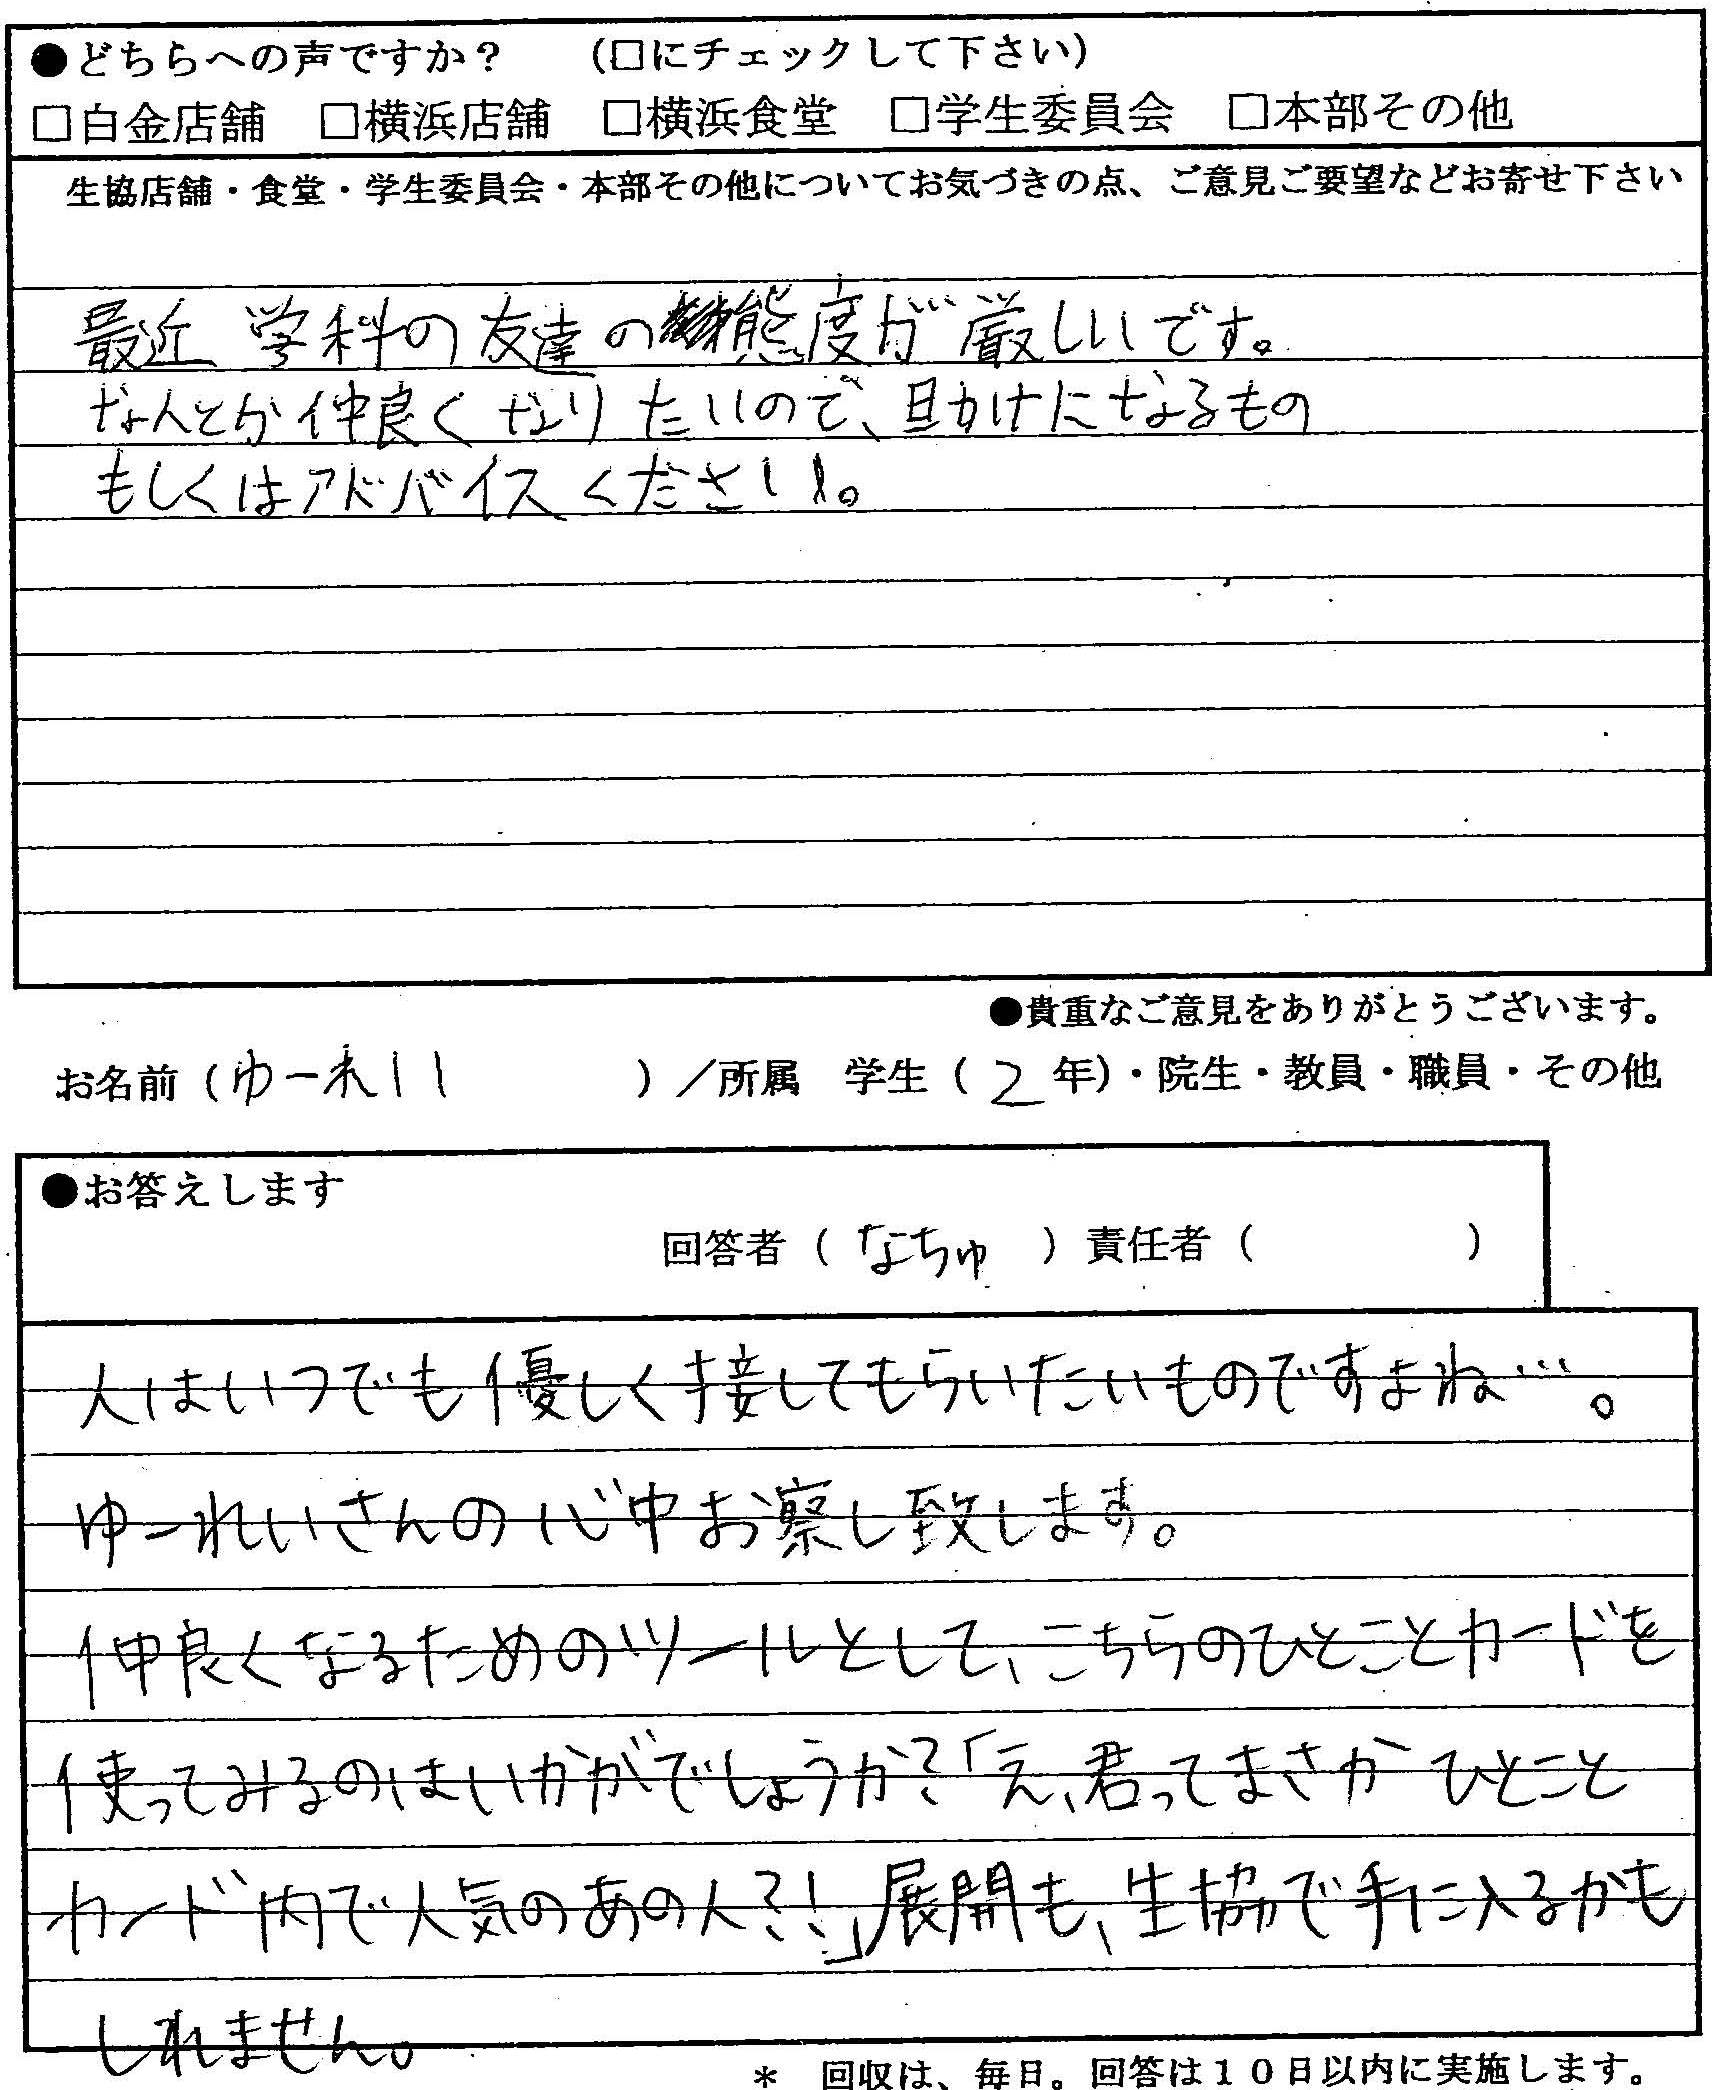 ●どちらへの声ですか？　（□にチェックして下さい）
□白金店舗　□横浜店舗　□横浜食堂　□学生委員会　□本部その他
生協店舗・食堂・学生委員会・本部その他についてお気づきの点、ご意見ご要望などお寄せ下さい
最近 学科の友達の態度が厳しいです。
なんとか仲良くなりたいので、助けになるもの
もしくはアドバイスください。
●貴重なご意見をありがとうございます。
お名前（ゆーれい　）／所属　学生（2年）・院生・教員・職員・その他
●お答えします
回答者（なちゅ）責任者（　）
人はいつでも優しく接してもらいたいものですよね…。
ゆーれいさんの心中お察し致します。
仲良くなるためのツールとして、こちらのひとことカードを
使ってみるのはいかがでしょうか？「え、君ってまさかひとこと
カード内で人気のあの人？！」展開も、生協で手に入るかも
しれません。
＊　回収は、毎日。回答は１０日以内に実施します。